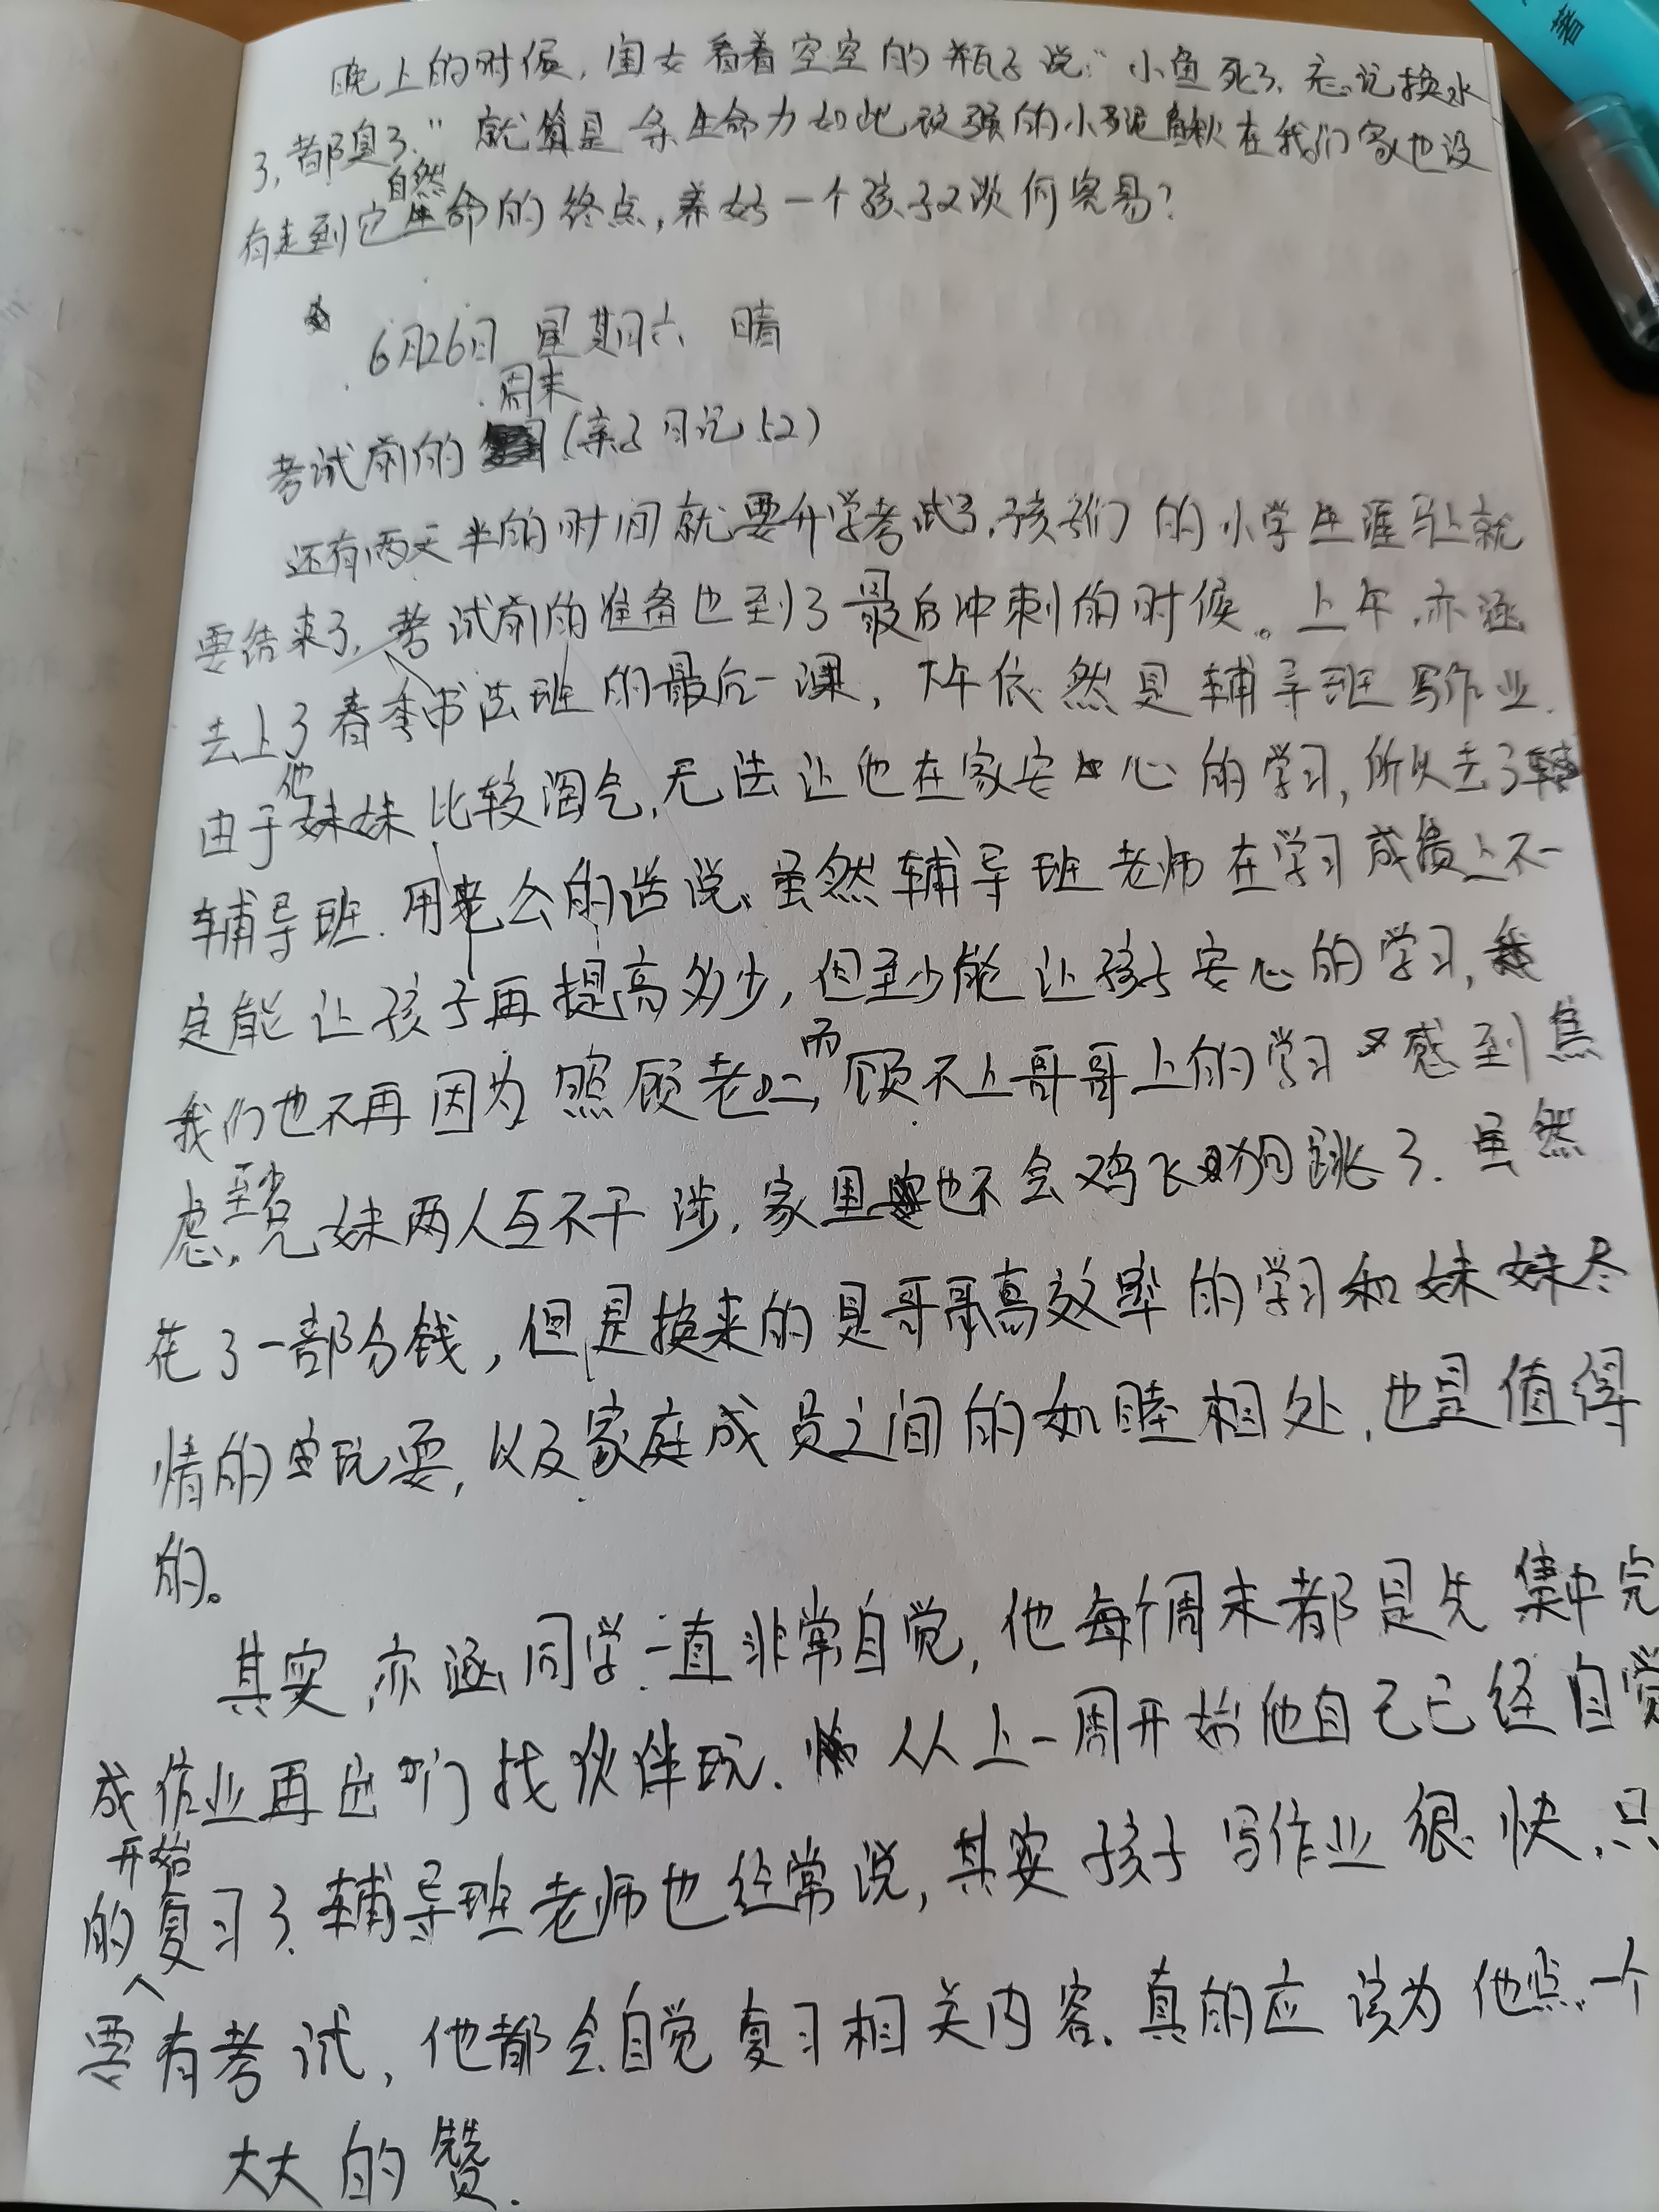 著
晚上的时候，闺女看着空空的瓶子说："小鱼死了，忘记换水
了，都臭了。"就算是一条生命力如此顽强的小泥鳅在我们家也没
有走到它自然生命的终点，养好一个孩子又谈何容易？
6月26日 星期六 晴
考试前的周末（亲子日记52）
还有两天半的时间就要升学考试了，孩子们的小学生涯马上就
要结束了，考试前的准备也到了最后冲刺的时候。上午，亦涵
去上了春季书法班的最后一课，下午依然是辅导班写作业.
由于他妹妹比较淘气，无法让他在家安心的学习，所以去了
辅导班.用老公的话说，虽然辅导班老师在学习成绩上不一
定能让孩子再提高多少，但至少能让孩子安心的学习，
我们也不再因为照顾老二，而顾不上哥哥上的学习感到焦
虑，至少兄妹两人互不干涉，家里也不会鸡飞狗跳了.虽然
花了一部分钱，但是换来的是哥哥高效率的学习和妹妹尽
情的玩耍，以及家庭成员之间的和睦相处，也是值得
的。
其实，亦涵同学一直非常自觉，他每个周末都是先集中完
成作业再出门找伙伴玩.从上一周开始他自己已经自觉
的开始复习了.辅导班老师也经常说，其实孩子写作业很快，只
要有考试，他都会自觉复习相关内容.真的应该为他点一个
大大的赞.